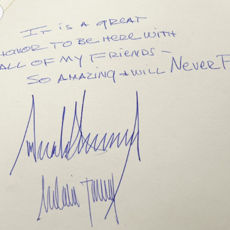 IT IS A GREAT
HONOR TO BE HERE WITH
ALL OF MY FRIENDS -
SO AMAZING + WILL NEVER F